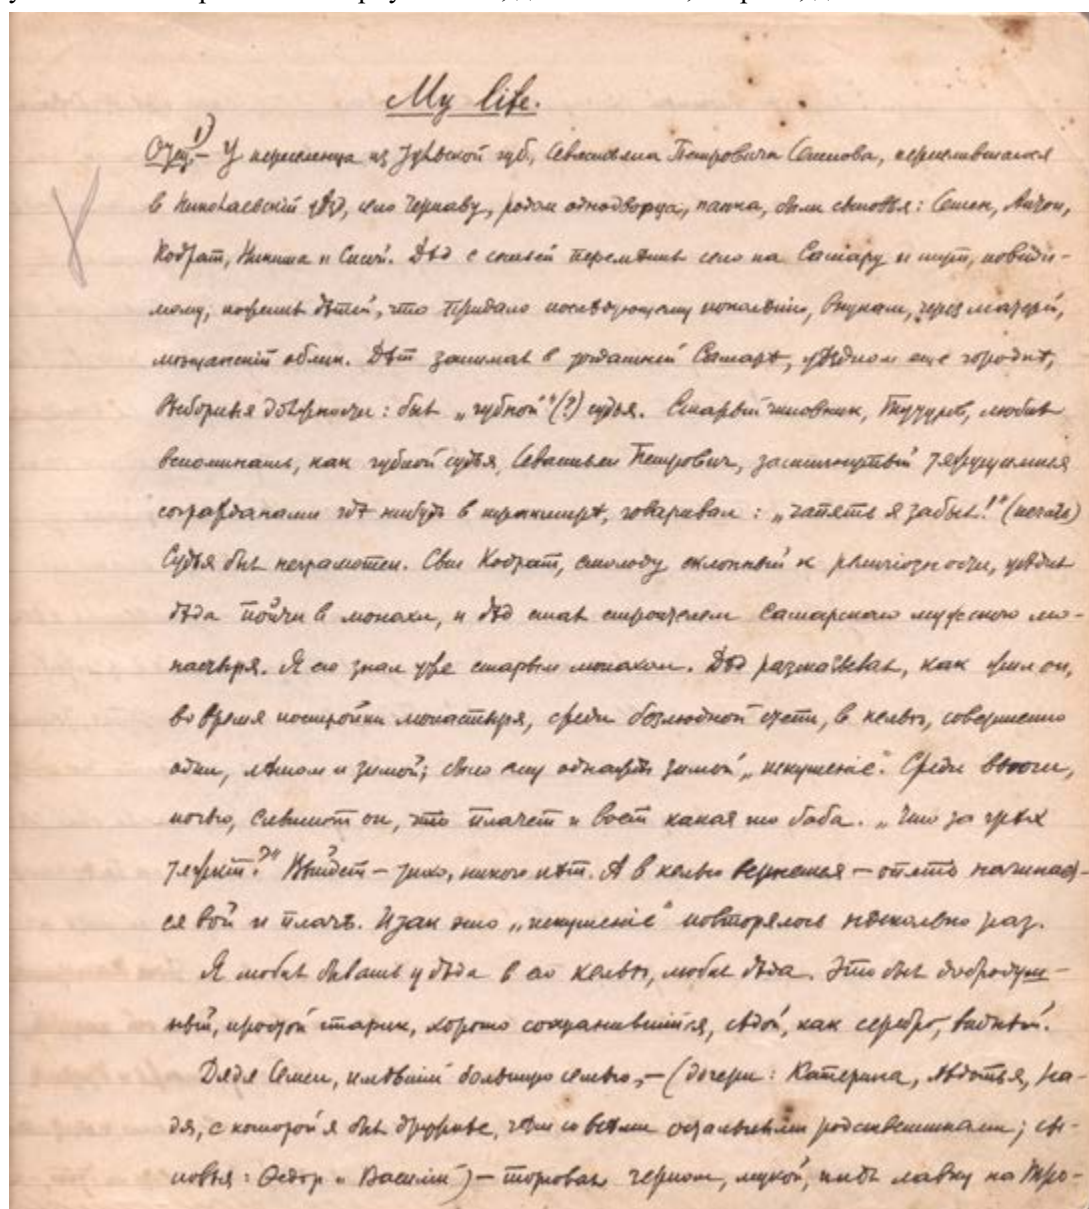 My life.
Отец.1) – У переселенца из Тульской губ., Севастьяна Петровича Семенова, переселившагося
в Николаевскій уѣзд, село Чернаву, родом однодворца, папка, были сыновья: Семен, Антон,
Кодрат, Никита и Сысой. Дѣд с семьей перемѣнил село на Самару и тут, повиди-
мому, поженил дѣтей, что придало последующему поколѣнію, внукам, через матерей,
мещанскій облик. Дѣд занимал в тогдашней Самарѣ, уѣздном еще городкѣ,
выборныя должности: был „губной" (?) судья. Старый чиновник, любил
вспоминать, как губной судья, Севастьян Петрович, застигнутый тяжущимися
согражданами гдѣ нибудь в трактирѣ, говаривал: „чапять я забыл!" (печать)
Судья был неграмотен. Сын Кодрат, смолоду склонный к религіозности, убѣдил
дѣда пойти в монахи, и дѣд стал строителем Самарскаго мужского мо-
настыря. Я его знал уже старым монахом. Дѣд разсказывал, как жил он,
во время постройки монастыря, среди безлюдной степи, в кельѣ, совершенно
один, лѣтом и зимой; было ему однажды зимой „искушеніе". Среди вьюги,
ночью, слышит он, что плачет и воет какая то баба. „Что за грѣх
такой?" Выйдет – тихо, никого нѣт. А в келью вернется – опять начинает-
ся вой и плач. И так это „искушеніе" повторялось нѣсколько раз.
Я любил бывать у дѣда в его кельѣ, любил дѣда. Это был добродуш-
ный, простой старик, хорошо сохранившійся, сѣдой, как серебро, видный.
Дядя Семен, имѣвшій большую семью, – (дочери: Катерина, Авдотья, На-
дя, с которой я был дружнѣе, чѣм со всѣми остальными родственниками; сы-
новья: Федор и Василій) – торговал мукой, имѣл лавку на Тро-